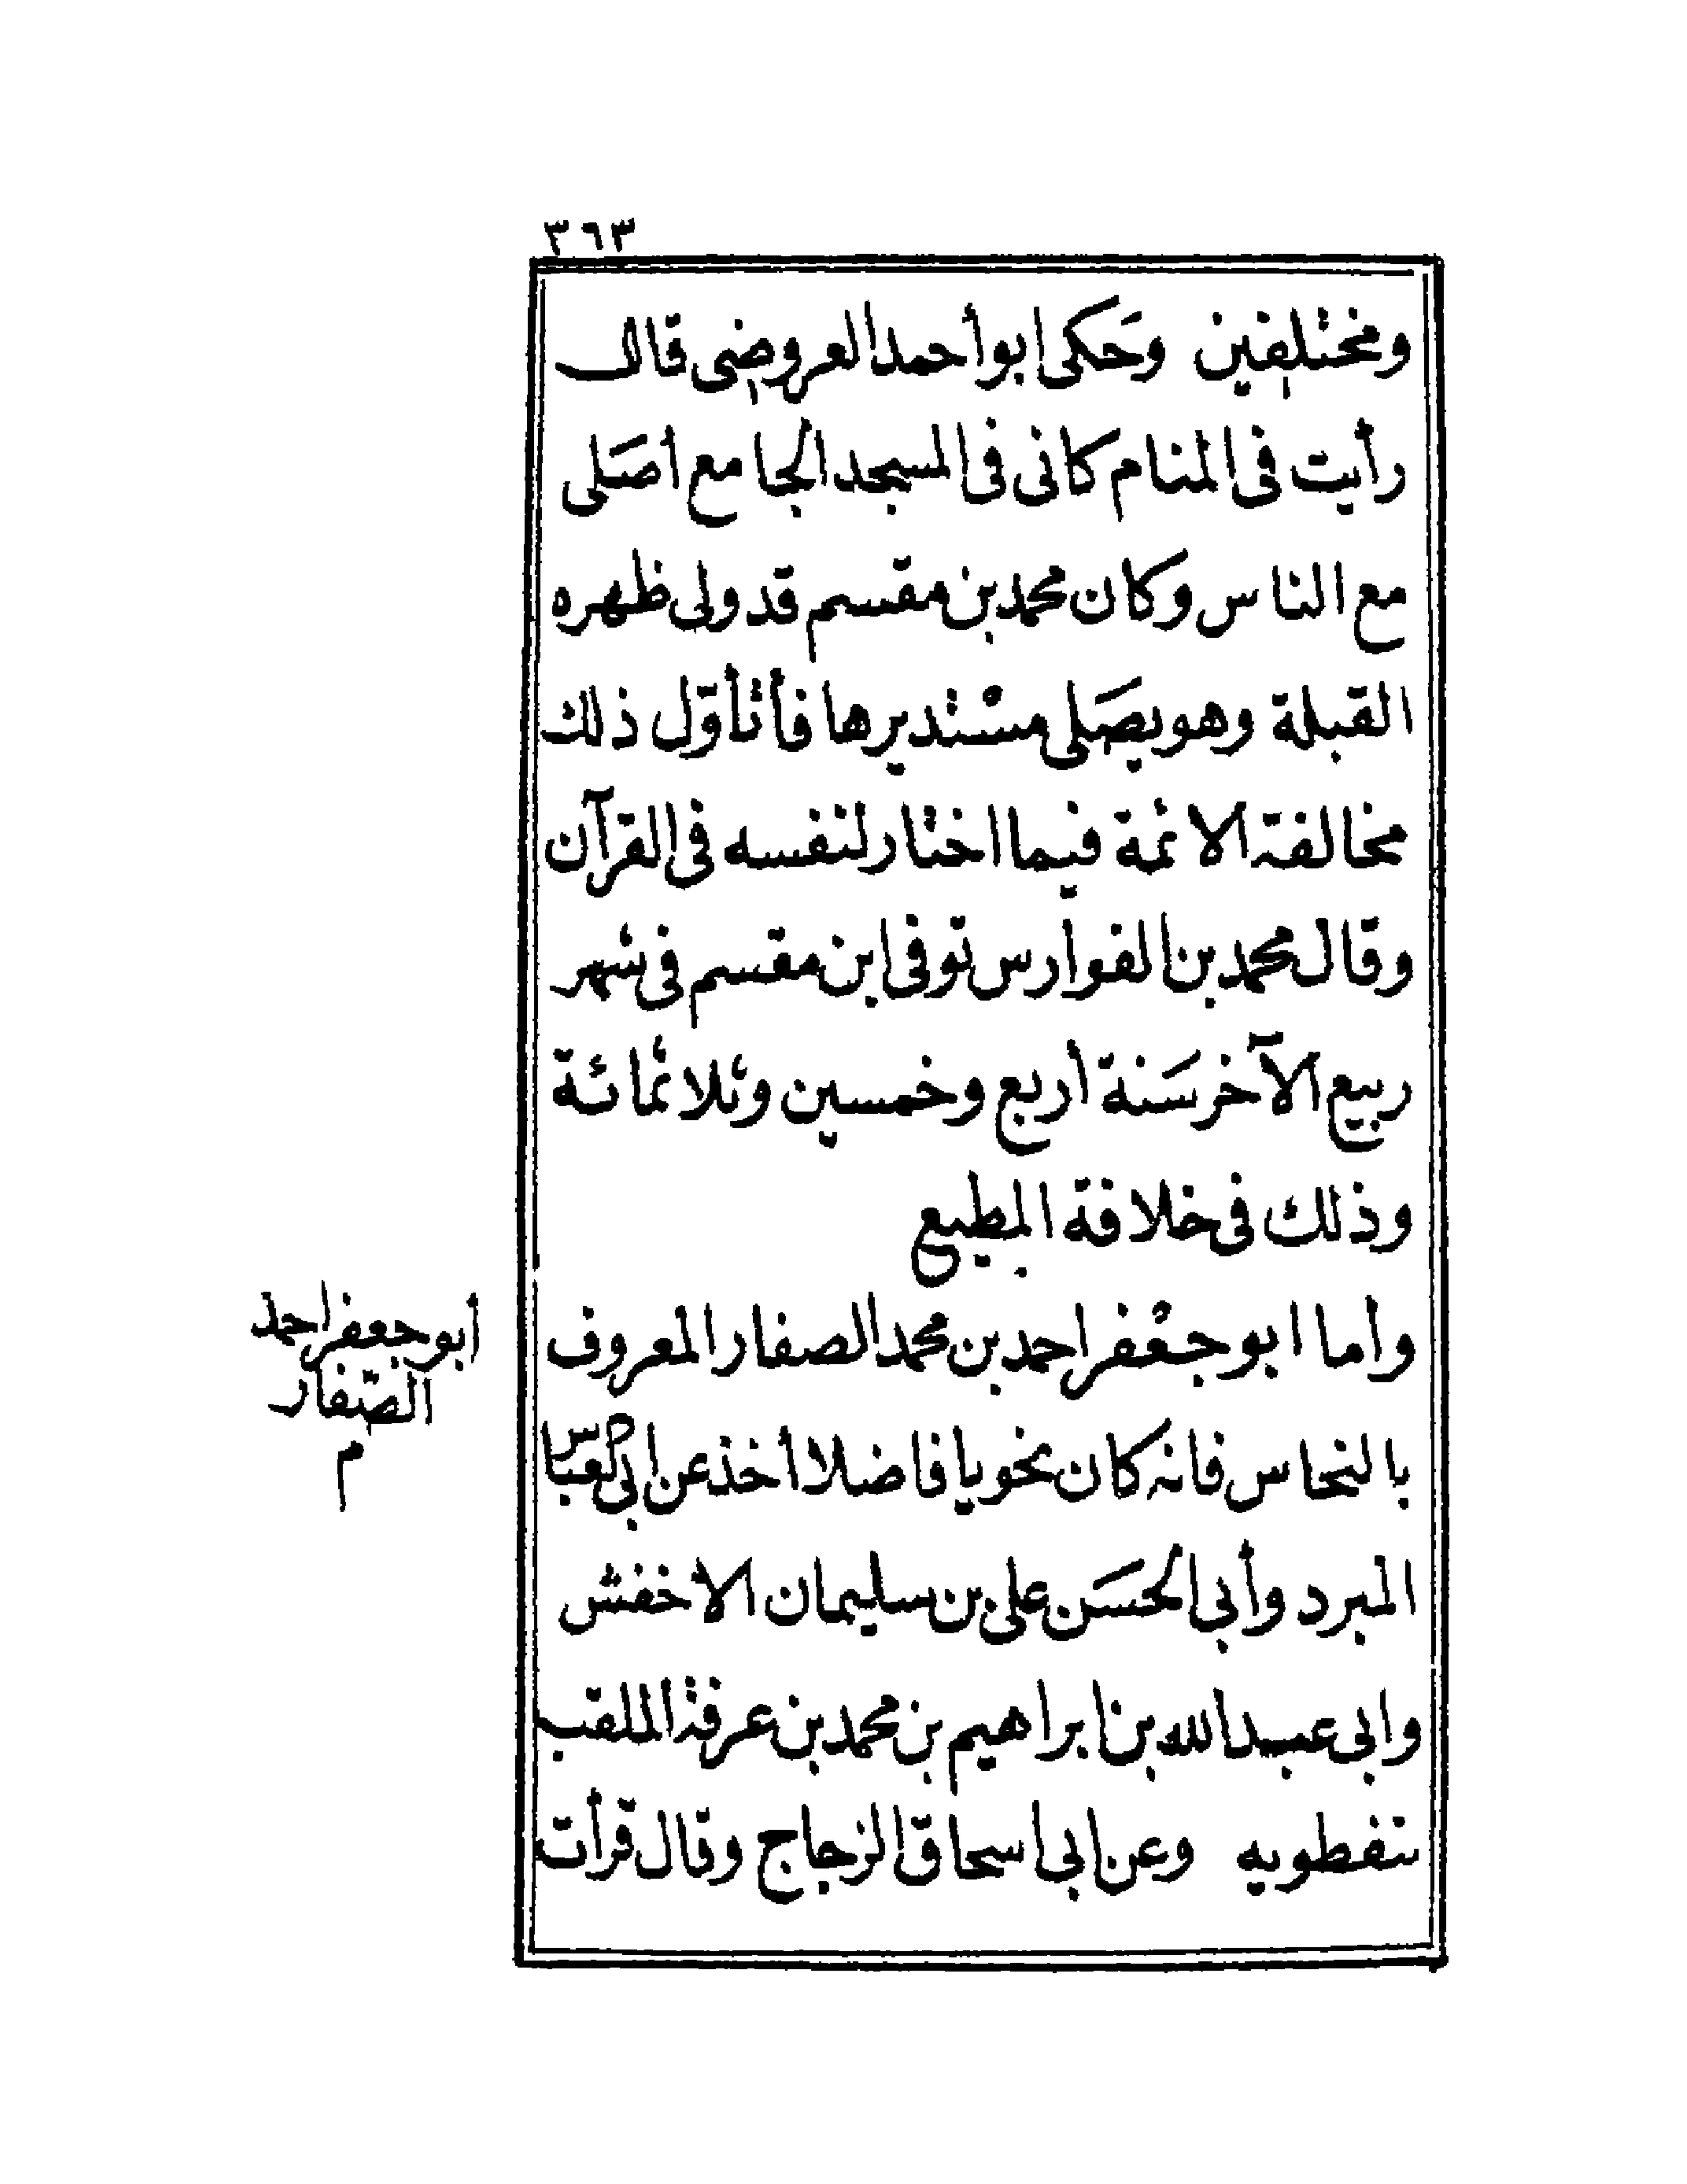 ٣٦٣
ومختلفين وحَكى ابو أحمد العروضى قال
رأيت فى المنام كانى فى المسجد الجامع أصَلى
مع الناس وكان محمد بن مقسم قد ولى ظهره
القبلة وهو يصَلى مسْتديرها فأتأوّل ذلك
مخالفة الائمة فيما اختار لنفسه فى القرآن
وقال محمد بن الفوارس توفى ابن مقسم فى شهر
ربيع الآخر سَنة أربع وخمسين وثلاثمائة
وذلك فى خلافة المطيع
وأما ابو جعْفر احمد بن محمد الصفار المعروف
بالنحاس فانه كان نحويا فاضلا أخذ عن ابى العباس
المبرد وأبى الحسَن على بن سليمان الأخفش
وابى عبد الله بن ابراهيم بن محمد بن عرفة الملقب
بنفطويه وعن ابى اسحاق الزجاج وقال قرأت
أبو جعفر احمد
الصّفار
م